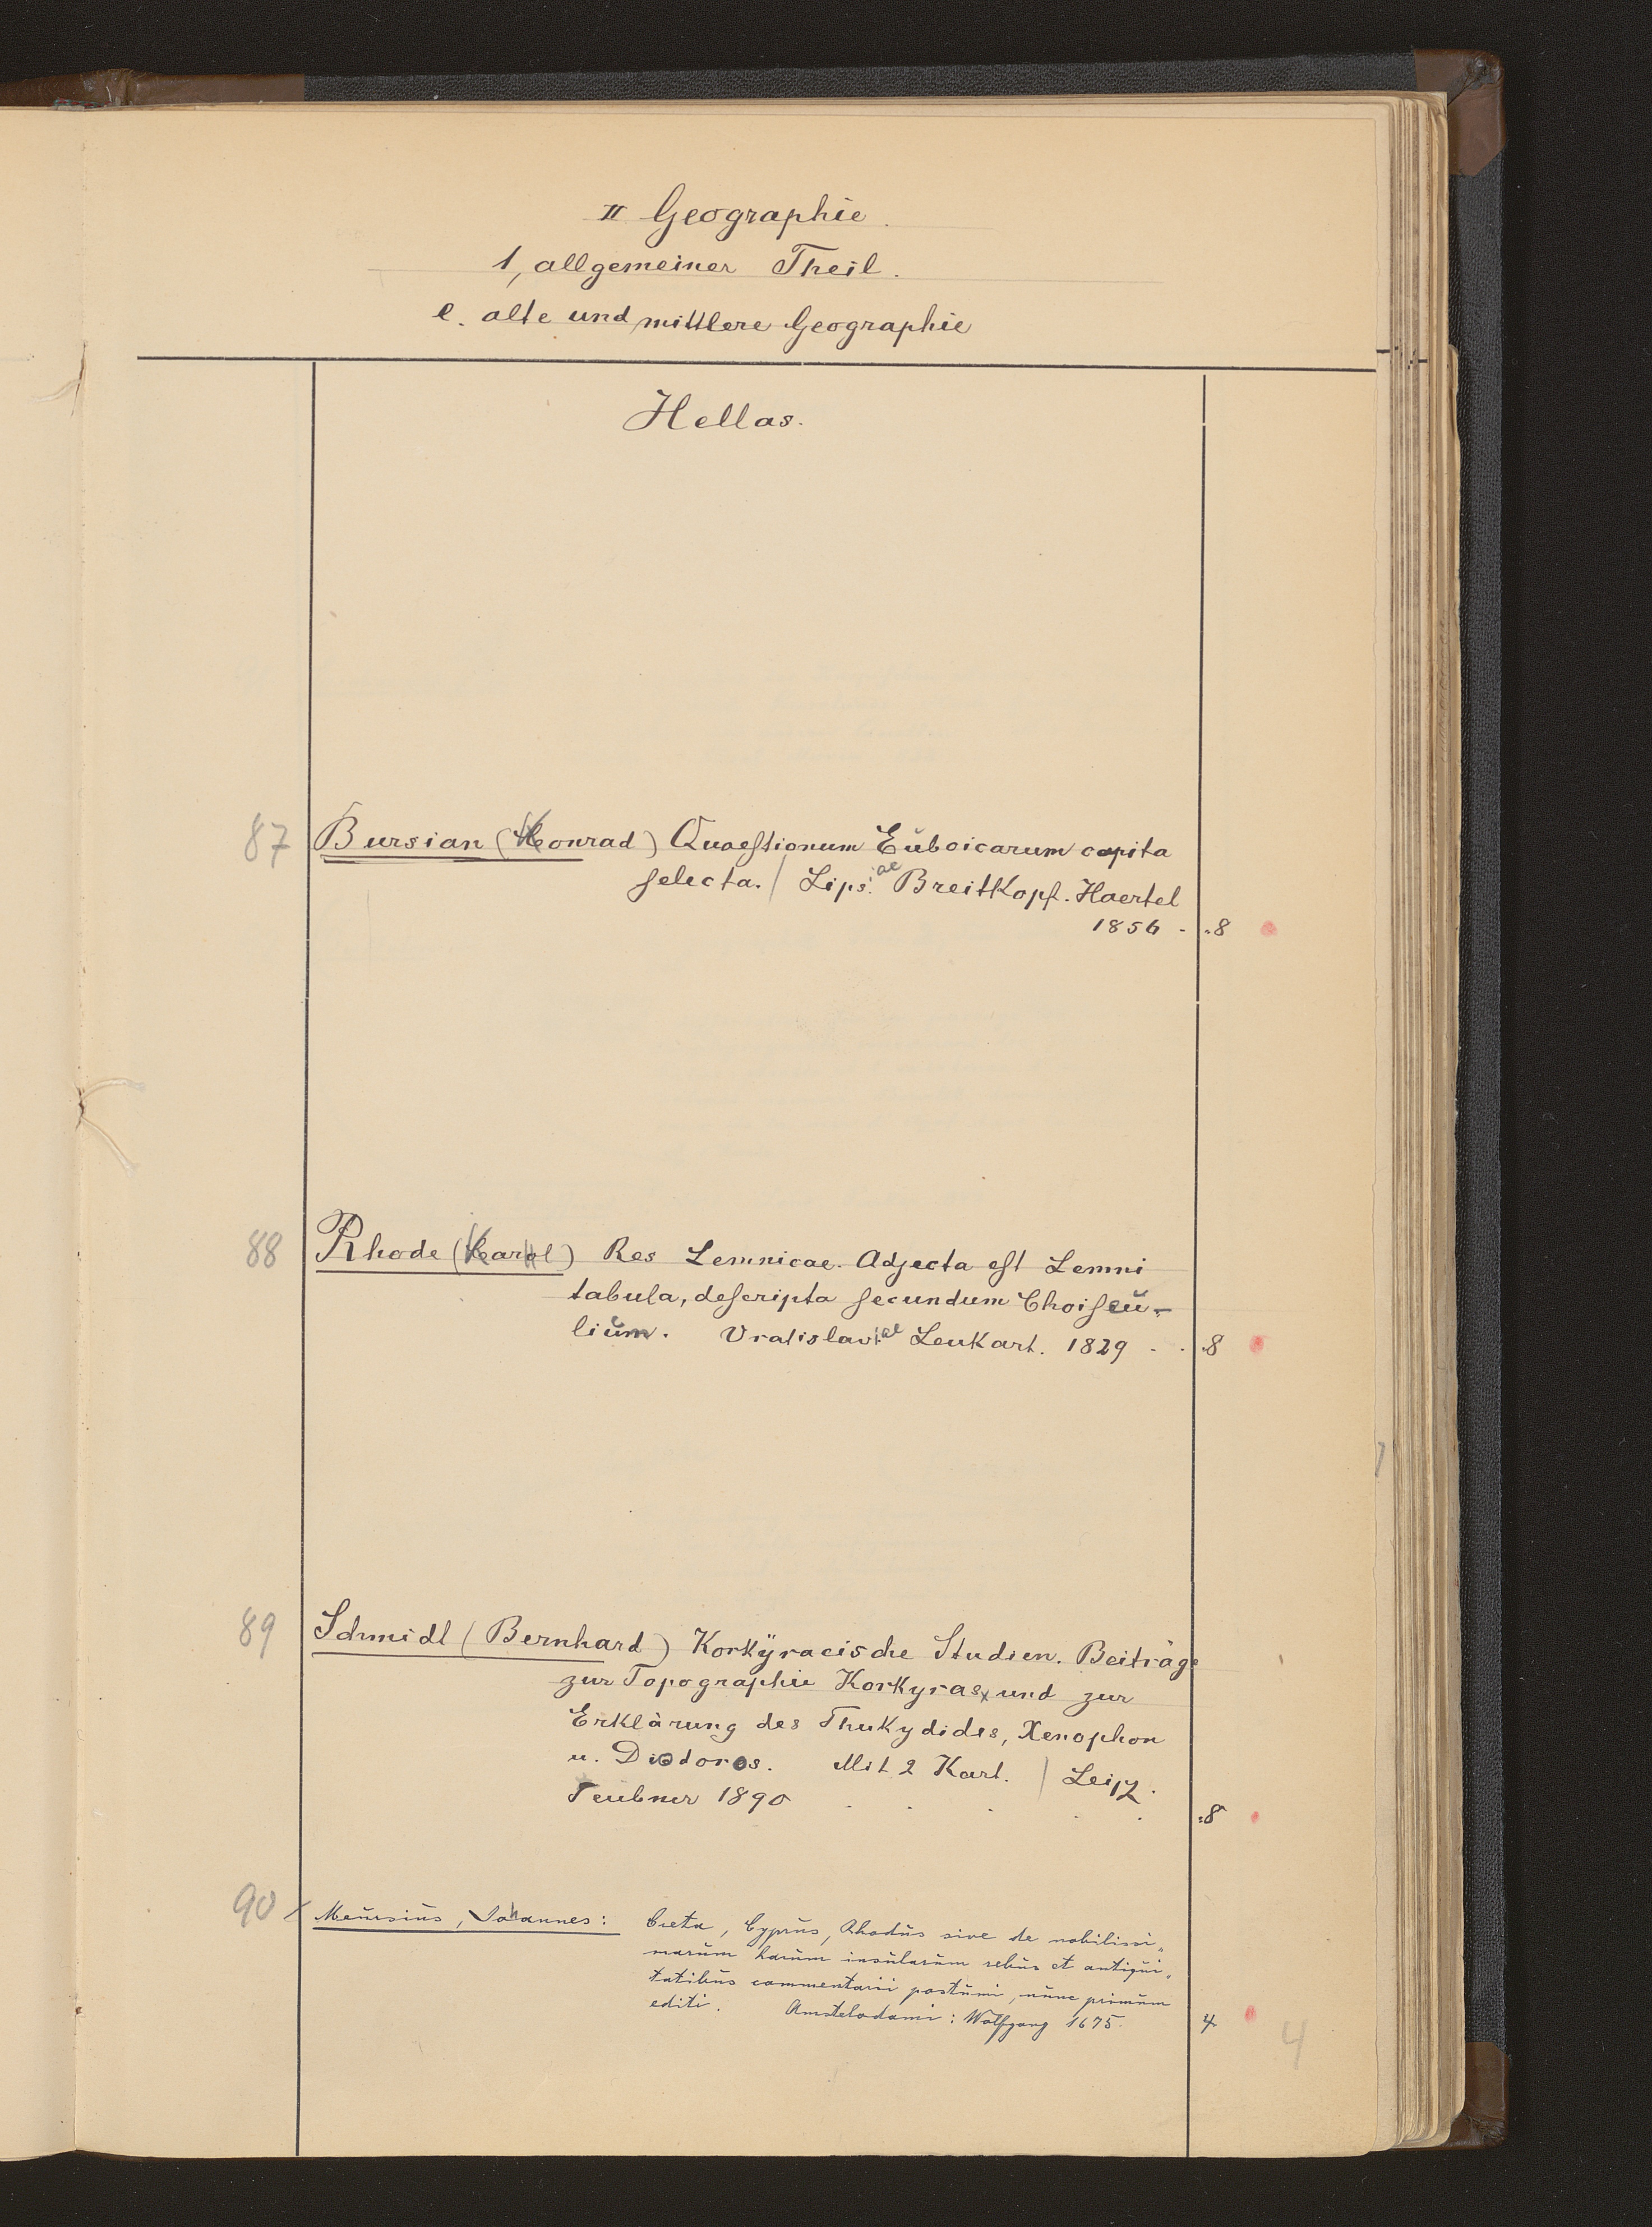 II Geographie.
1, allgemeiner Theil.
e. alte und mittlere Geographie
Hellas.
87 Bursian (Konrad) Quaestionum Euboicarum capita
selecta. / Lipsiae Breitkopf. Haertel
1856 - .8
88 Rhode (Karl) Res Lemnicae. Adjecta est Lemni
tabula, descripta secundum Choiseu-
lium. Vratislaviae Leukart. 1829 . . .8
89 Schmidt (Bernhard) Korkÿraeische Studien. Beiträge
zur Topographie Korkyras und zur
Erklärung des Thukydides, Xenophon
u. Diodoros. Mit 2 Kart. / Leipz.
Teubner 1890 . . . . . :8
90 Meursius, Johannes: Creta, Cyprus, Rhodus sive de nobilissi„
marum harum insularum rebus et antiqui„
tatibus commentarii postumi, nunc primum
editi. Amstelodami: Wolfgang 1675. 4
4